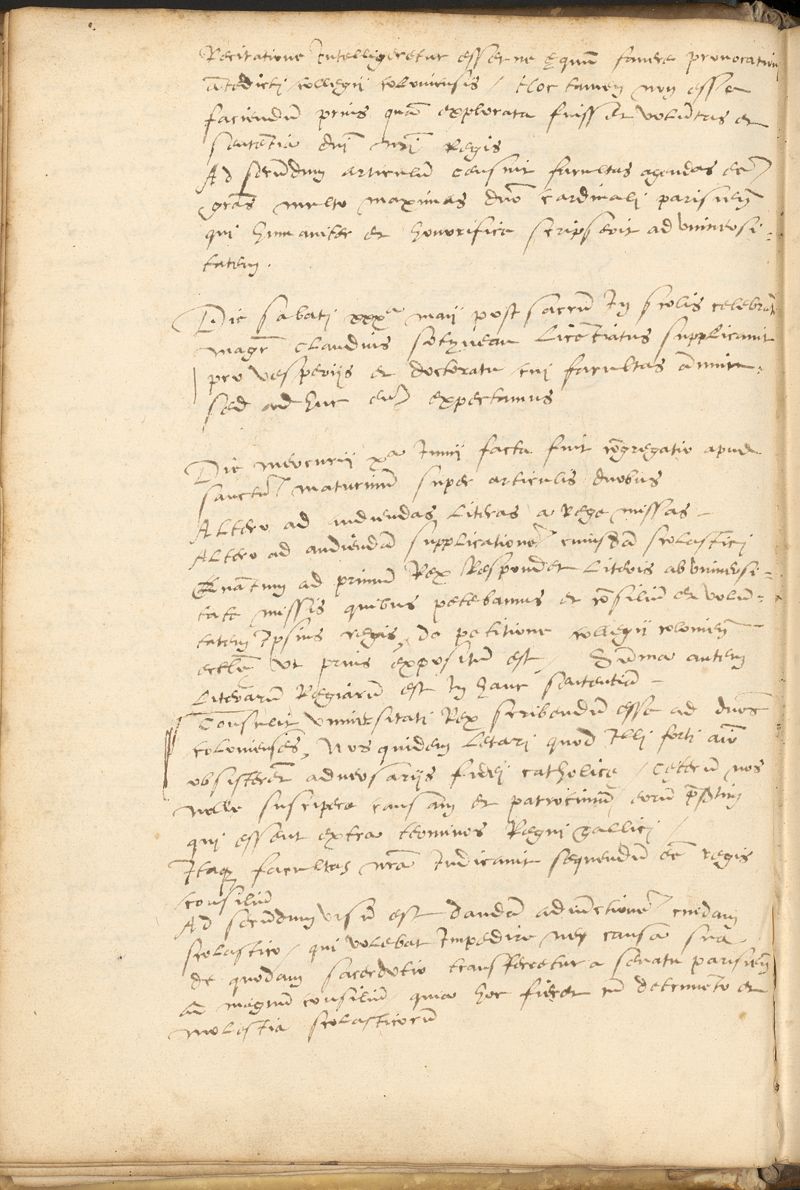 Recitatione Intelligeretur esset ne ęquū favere provocationi
ātedicti collegii coloniensis / Hoc tamen non esse
faciendū prius quā explorata fuisset volūtas et
sentētia dnī nrī Regis
Ad secūdum articulū censuit facultas agendas eē
grās multo maximas dnō Cardinali parisiēn
qui humaniter et honorifice scripserit ad universi-
tatem.
Die sabati xxxa maii post sacrū In scolis celebrat
magr Claudius Licētiatus supplicavit
pro vesperiis et doctoratu cui facultas ānuit
sed ad huc eū expectamus
Die mercurii xa Iunii facta fuit cōgregatio apud
sanctū maturinū super articulis duobus
Altero ad audiendas Literas a Rege missas -
Altero ad audiendā supplicationē cuiusdā scolastici
Quātum ad primū Rex Respondet Literis ab universi-
tate missis quibus petebamus et cōsiliū et volū-
tatem Ipsius regis, de petitione collegii coloniēn
ut prius expositū est / Sūma autem
Literarū Regiarū est In hanc sentētiā -
Consulit universitati Rex scribendū esse ad dnos
colonienses, Nos quidem Letari quod Illi forti aīo
obsisterēt adversariis fidei catholicę / Ceterū nos
nolle suscipere causam et patrociniū eorū prsertim
qui essent extra terminos Regni gallici /
Itaq facultas nrā Iudicavit sequendū eē regis
consiliū
Ad secūdum visū est dandā adiūctionē cuidam
scolastico, qui volebat Impedire ney causa sua
de quodam sacerdotio transferretur a senatu parisiēn
ad magnū consiliū quia hoc fieret cū detrimēto et
molestia scolasticorū